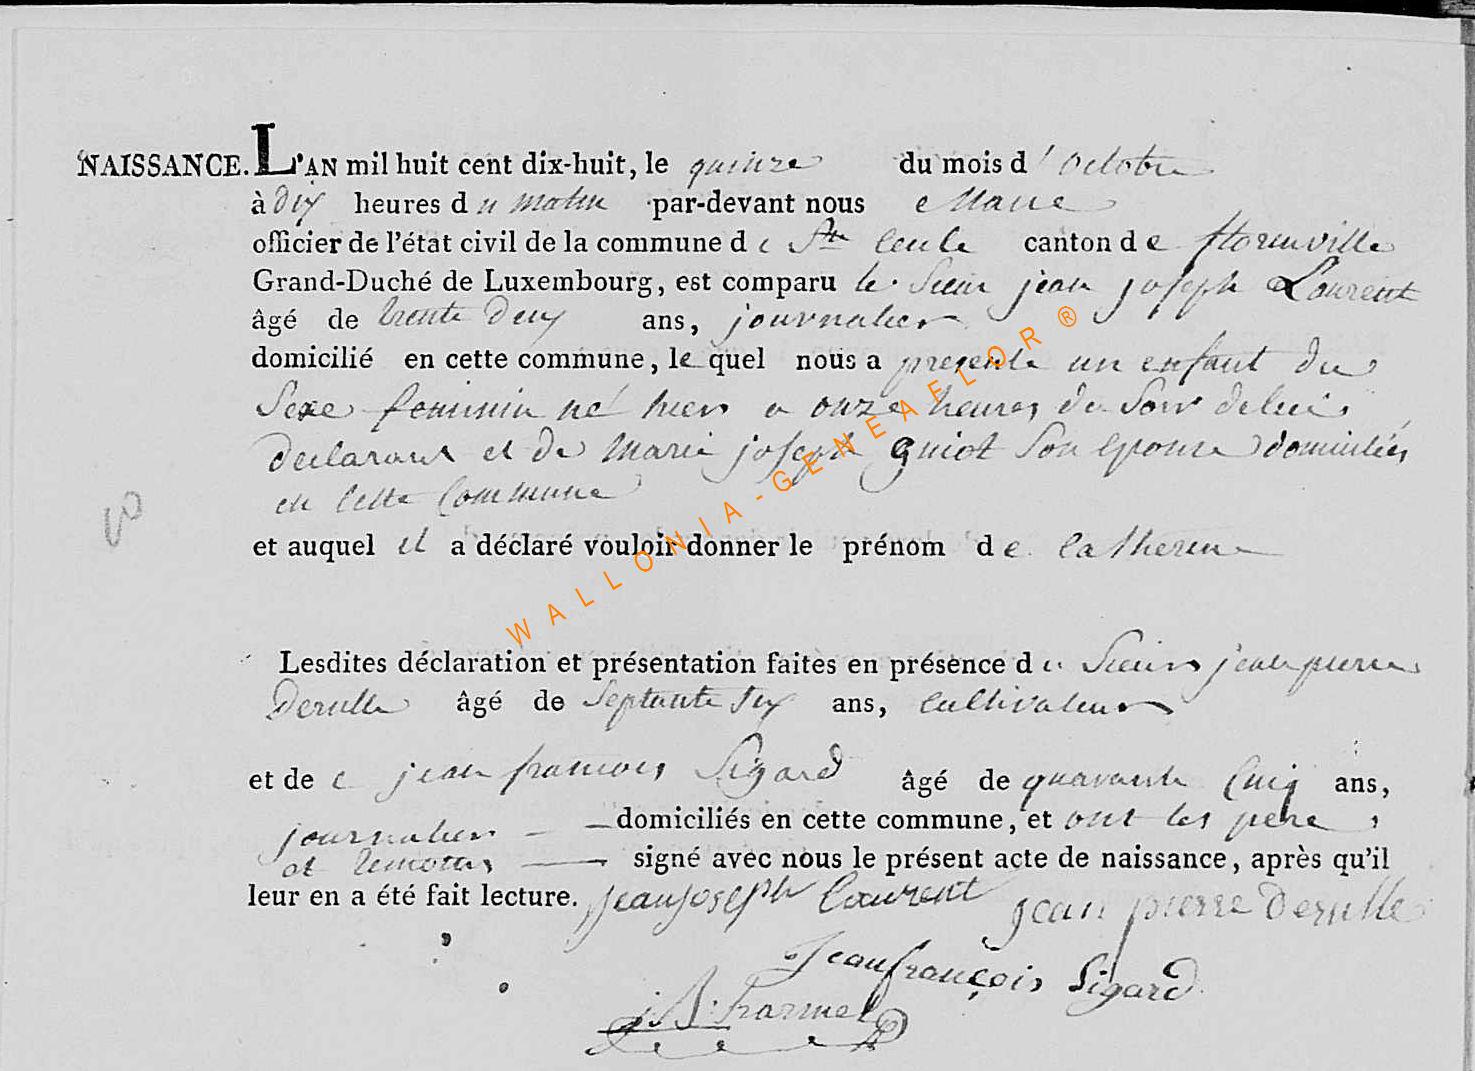 NAISSANCE. L'AN mil huit cent dix-huit, le quinze du mois d'octobre
à dix heures du matin par-devant nous Maire
officier de l'état civil de la commune de Ste Cecile canton de florenville
Grand-Duché de Luxembourg, est comparu le Sieur jean joseph Laurent
âgé de trente deux ans, journalier
domicilié en cette commune, lequel nous a presente un enfant du
Sexe feminin né hier a onze heures du Soir de lui
declarant et de marie joseph guiot Son epouse domiciliés
en cette Commune
et auquel il a déclaré vouloir donner le prénom de catherine
Lesdites déclaration et présentation faites en présence du Sieur jean pierre
Derulle âgé de Septante Six ans, cultivateur
et de jean francois Sigard âgé de quarante cinq ans,
journalier domiciliés en cette commune, et ont les pere
et temoins signé avec nous le présent acte de naissance, après qu'il
leur en a été fait lecture. jean joseph Laurent jean pierre Derulle
Jean françois Sigard
WALLONIA-GENEAFLOR ®